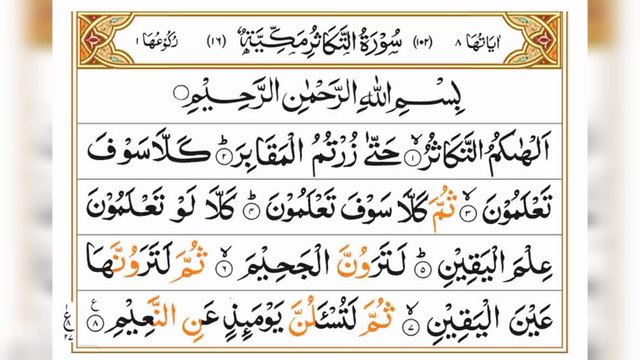 اٰيَاتُهَا ٨ (١٠٢) سُوْرَةُ التَّكَاثُرِ مَكِّيَّةٌ (١٦) رُكُوْعُهَا ١
بِسْمِ اللّٰهِ الرَّحْمٰنِ الرَّحِيْمِ
اَلْهٰىكُمُ التَّكَاثُرُ ۙ﴿١﴾ حَتّٰى زُرْتُمُ الْمَقَابِرَ ؕ﴿٢﴾ كَلَّا سَوْفَ
تَعْلَمُوْنَ ۙ﴿٣﴾ ثُمَّ كَلَّا سَوْفَ تَعْلَمُوْنَ ؕ﴿٤﴾ كَلَّا لَوْ تَعْلَمُوْنَ
عِلْمَ الْيَقِيْنِ ؕ﴿٥﴾ لَتَرَوُنَّ الْجَحِيْمَ ۙ﴿٦﴾ ثُمَّ لَتَرَوُنَّهَا
عَيْنَ الْيَقِيْنِ ۙ﴿٧﴾ ثُمَّ لَتُسْـَٔلُنَّ يَوْمَىِٕذٍ عَنِ النَّعِيْمِ ﴿٨﴾
ع
٨
٢٧